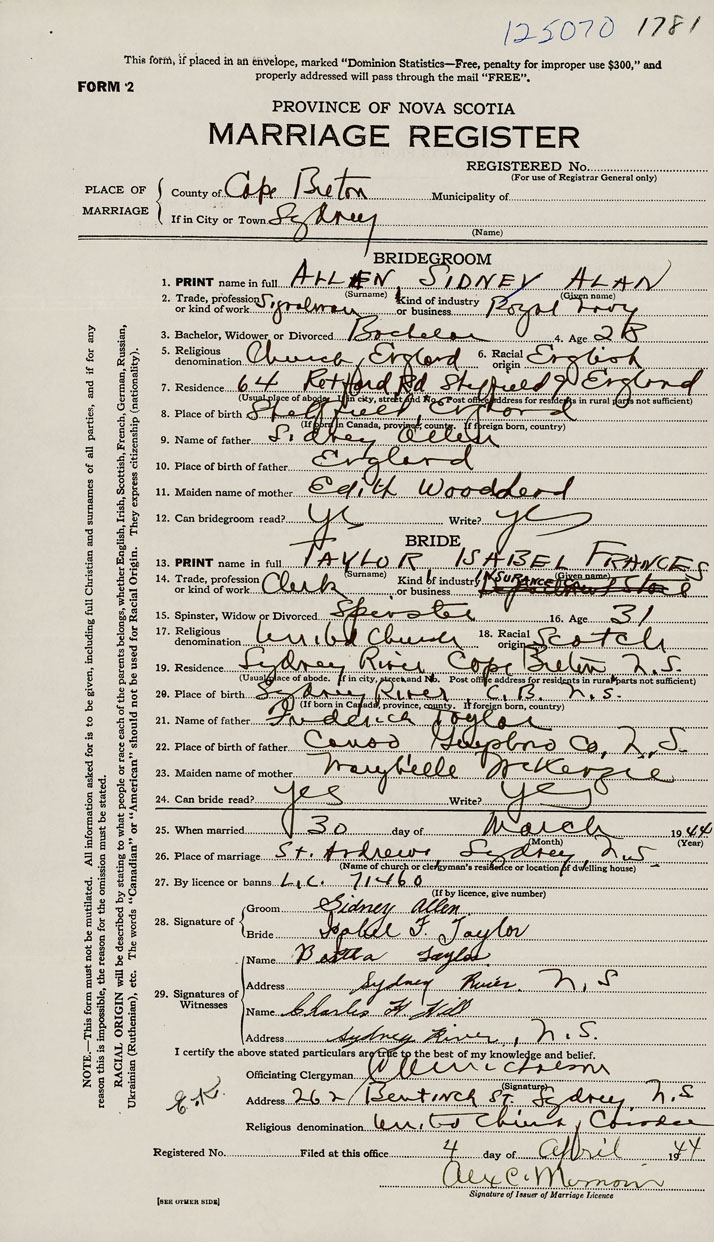 125070 1781
This form, if placed in an envelope, marked "Dominion Statistics—Free, penalty for improper use $300," and
properly addressed will pass through the mail "FREE".
FORM 2
PROVINCE OF NOVA SCOTIA
MARRIAGE REGISTER
REGISTERED No.
(For use of Registrar General only)
PLACE OF MARRIAGE
County of Cape Breton Municipality of
If in City or Town Sydney
(Name)
BRIDEGROOM
1. PRINT name in full ALLEN, SIDNEY ALAN
(Surname) (Given name)
2. Trade, profession or kind of work Signalman Kind of industry or business Royal Navy
3. Bachelor, Widower or Divorced Bachelor 4. Age 28
5. Religious denomination Church England 6. Racial origin English
7. Residence 64 Retford Rd Sheffield 9 England
(Usual place of abode. If in city, street and No. Post office address for residents in rural parts not sufficient)
8. Place of birth Sheffield, England
(If born in Canada, province, county. If foreign born, country)
9. Name of father Sidney Allen
10. Place of birth of father England
11. Maiden name of mother Edith Woodhead
12. Can bridegroom read? yes Write? yes
BRIDE
13. PRINT name in full TAYLOR, ISABEL FRANCES
(Surname) (Given name)
14. Trade, profession or kind of work Clerk Kind of industry or business INSURANCE Co.
15. Spinster, Widow or Divorced Spinster 16. Age 31
17. Religious denomination United Church 18. Racial origin Scotch
19. Residence Sydney River, Cape Breton N.S.
(Usual place of abode. If in city, street and No. Post office address for residents in rural parts not sufficient)
20. Place of birth Sydney River, C.B. N.S.
(If born in Canada, province, county. If foreign born, country)
21. Name of father Frederick Taylor
22. Place of birth of father Canso Guysboro Co, N.S.
23. Maiden name of mother Marybelle McKenzie
24. Can bride read? yes Write? yes
25. When married 30 day of March 1944
(Month) (Year)
26. Place of marriage St. Andrews Sydney, N.S
(Name of church or clergyman's residence or location of dwelling house)
27. By licence or banns L.C. 71460
(If by licence, give number)
28. Signature of
Groom Sidney Allen
Bride Isabel F. Taylor
29. Signatures of Witnesses
Name Bertha Taylor
Address Sydney River. N.S
Name Charles H Hill
Address Sydney River, N.S.
I certify the above stated particulars are true to the best of my knowledge and belief.
Officiating Clergyman Nicholson
(Signature)
Address 262 Bentinck St. Sydney, N.S
Religious denomination United Church, Canada
Registered No. Filed at this office 4 day of April 1944
Signature of Issuer of Marriage Licence
[SEE OTHER SIDE]
NOTE.—This form must not be mutilated. All information asked for is to be given, including full Christian and surnames of all parties, and if for any
reason this is impossible, the reason for the omission must be stated.
RACIAL ORIGIN will be described by stating to what people or race each of the parents belongs, whether English, Irish, Scottish, French, German, Russian,
Ukrainian (Ruthenian), etc. The words "Canadian" or "American" should not be used for Racial Origin. They express citizenship (nationality).